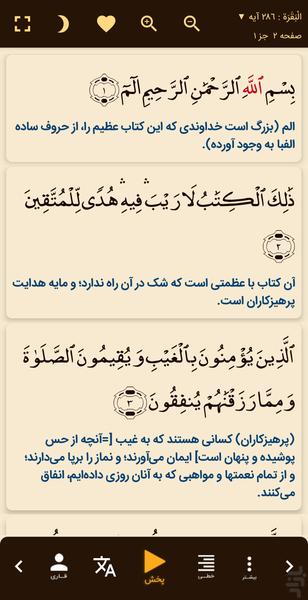 الْبَقَرَة : ۲۸۶ آیه ▼
صفحه ۲ جز ۱
بِسْمِ اللَّهِ الرَّحْمَٰنِ الرَّحِيمِ الٓمٓ ۝۱
الم (بزرگ است خداوندی که این کتاب عظیم را، از حروف ساده
الفبا به وجود آورده).
ذَٰلِكَ الْكِتَٰبُ لَا رَيْبَ ۛ فِيهِ ۛ هُدًى لِّلْمُتَّقِينَ
۝۲
آن کتاب با عظمتی است که شک در آن راه ندارد؛ و مایه هدایت
پرهیزکاران است.
الَّذِينَ يُؤْمِنُونَ بِالْغَيْبِ وَيُقِيمُونَ الصَّلَوٰةَ
وَمِمَّا رَزَقْنَٰهُمْ يُنفِقُونَ ۝۳
(پرهیزکاران) کسانی هستند که به غیب [=آنچه از حس
پوشیده و پنهان است] ایمان می‌آورند؛ و نماز را برپا می‌دارند؛
و از تمام نعمتها و مواهبی که به آنان روزی داده‌ایم، انفاق
می‌کنند.
بیشتر
خطی
پخش
قاری
بازار